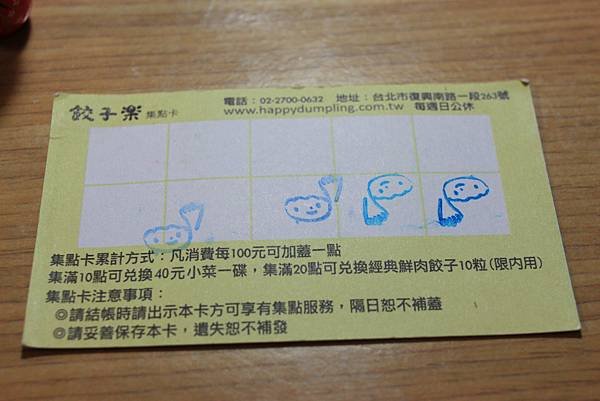 餃子樂 集點卡
電話：02-2700-0632 地址：台北市復興南路一段263號
www.happydumpling.com.tw 每週日公休
集點卡累計方式：凡消費每100元可加蓋一點
集滿10點可兌換40元小菜一碟，集滿20點可兌換經典鮮肉餃子10粒(限內用)
集點卡注意事項：
◎請結帳時請出示本卡方可享有集點服務，隔日恕不補蓋
◎請妥善保存本卡，遺失恕不補發